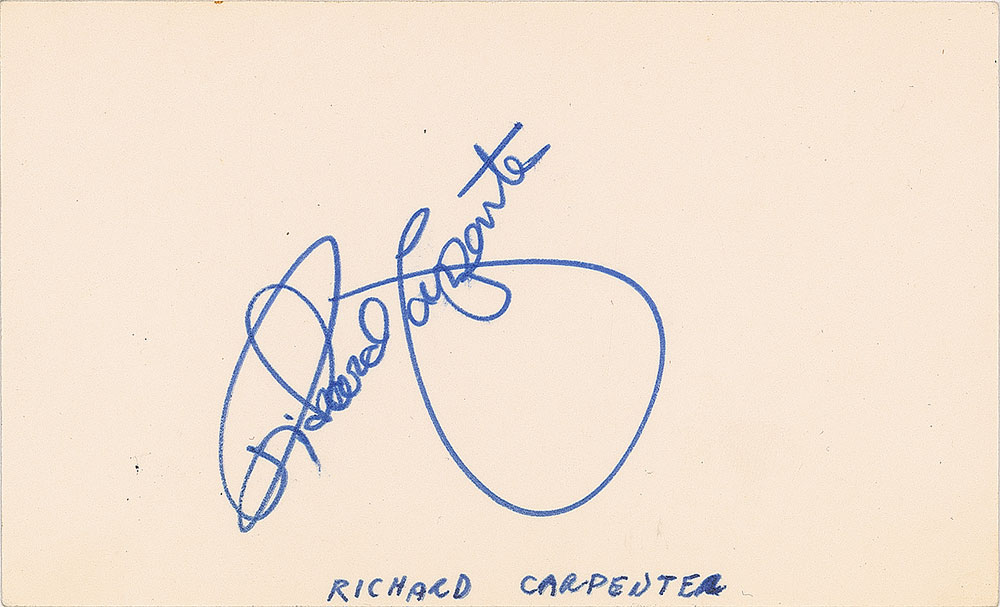 Richard Carpenter
RICHARD CARPENTER